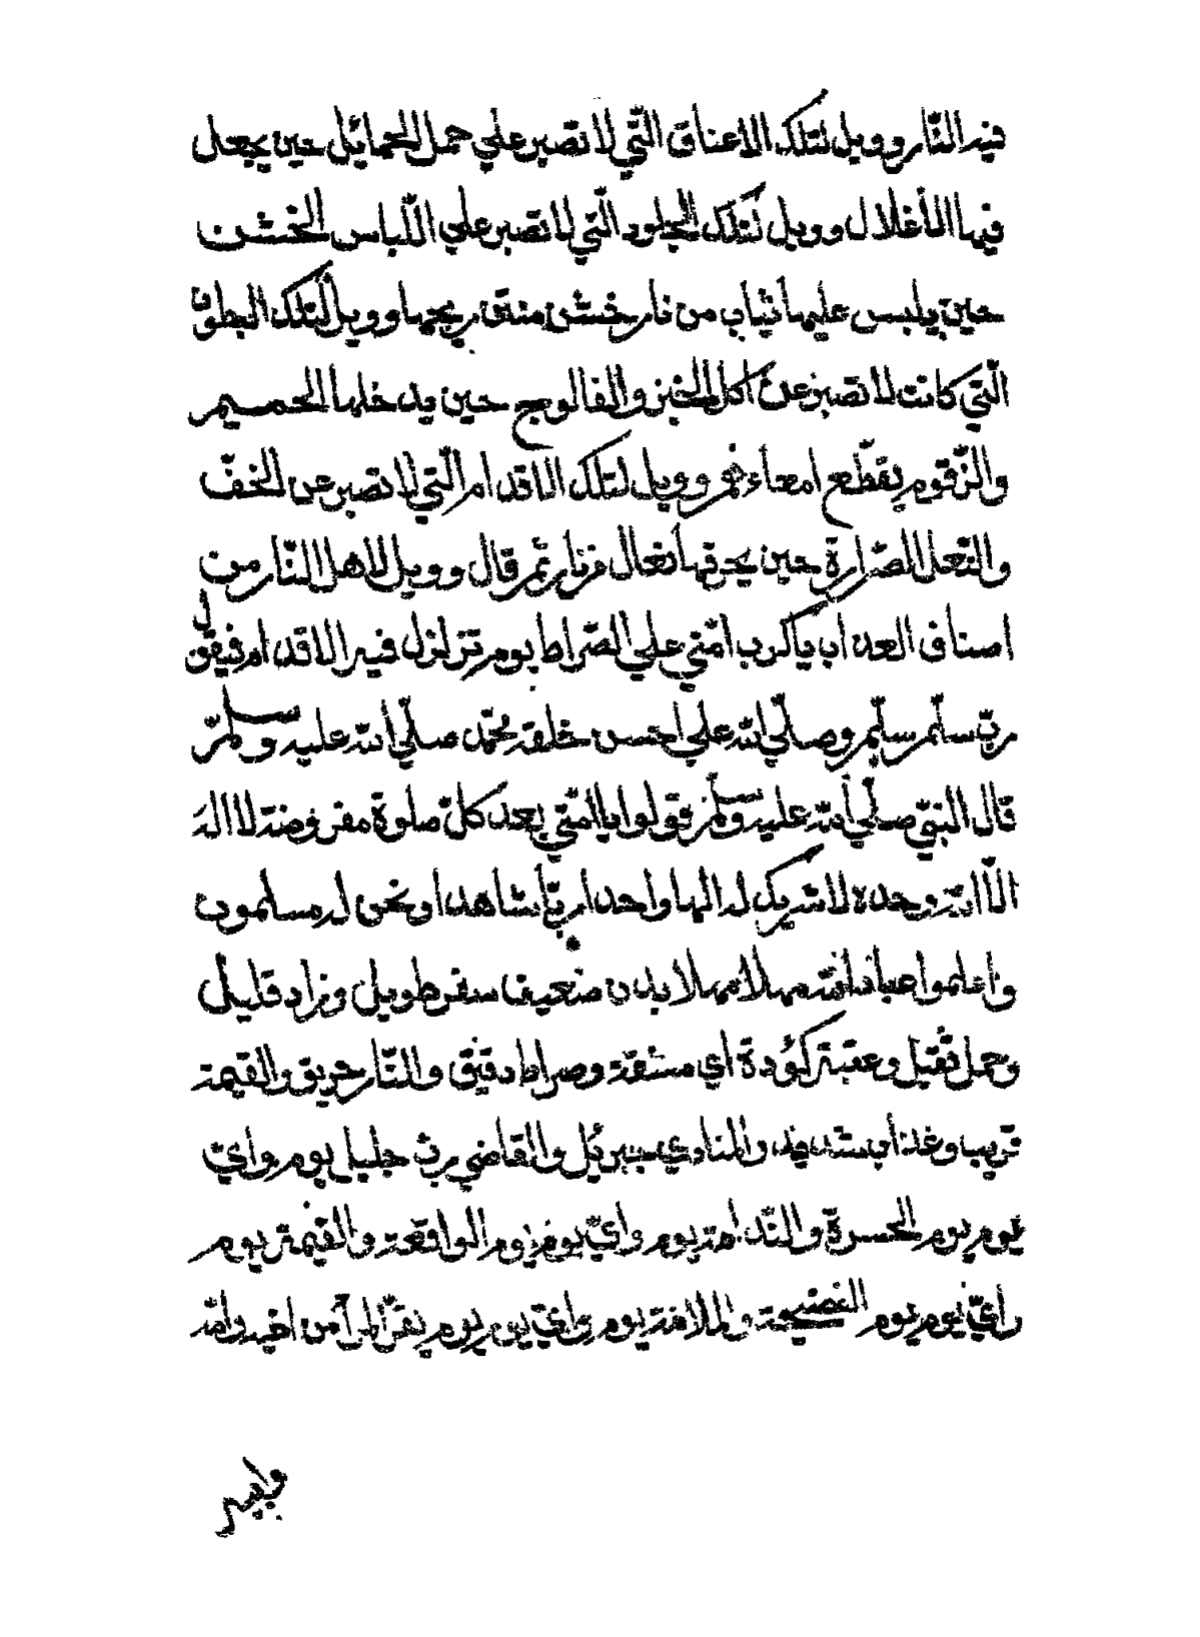 فيه النّار وويل لتلك الاعناق الّتي لا تصبر علي حمل الحمائل حين يجعل
فيها الأغلال وويل لتلك الجلود الّتي لا تصبر علي اللّباس الخشن
حين يلبس عليها ثياب من نار خشن منتن ريحها وويل لتلك البطون
الّتي كانت لا تصبر عن اكل الخبز والفالوج حين يدخلها الحميم
والزّقوم يقطّع امعاءهم وويل لتلك الاقدام الّتي لا تصبر عن الخفّ
والنعل الصّرارة حين يحرقها نعال من نار ثم قال وويل لاهل النّار من
اصناف العذاب يا كرب امّتي علي الصّراط يوم تزلزل فيه الاقدام فيقول
ربّ سلّم سلّم وصلّي الله علي احسن خلقه محمّد صلّي الله عليه وسلم
قال النبيّ صلّي الله عليه وسلم قولوا يا امّتي بعد كلّ صلوة مفروضة لا اله
الّا الله وحده لا شريك له الها واحدا ربّا شاهدا ونحن له مسلمون
واعلموا عباد الله مهلا مهلا بدن ضعيف سفر طويل وزاد قليل
وحمل ثقيل وعقبة كؤدة اي مشقة وصراط دقيق والنّار حريق والقيمة
قريب وعذاب شديد والمنادي جبرئيل والقاضي ربّ جليل يوم وايّ
يوم يوم الحسرة والنّدامة يوم وايّ يوم يوم الواقعة والقيمة يوم
وايّ يوم يوم الفضيحة والملامة يوم وايّ يوم يوم يفرّ المرأ من اخيه وامّه
وابيه